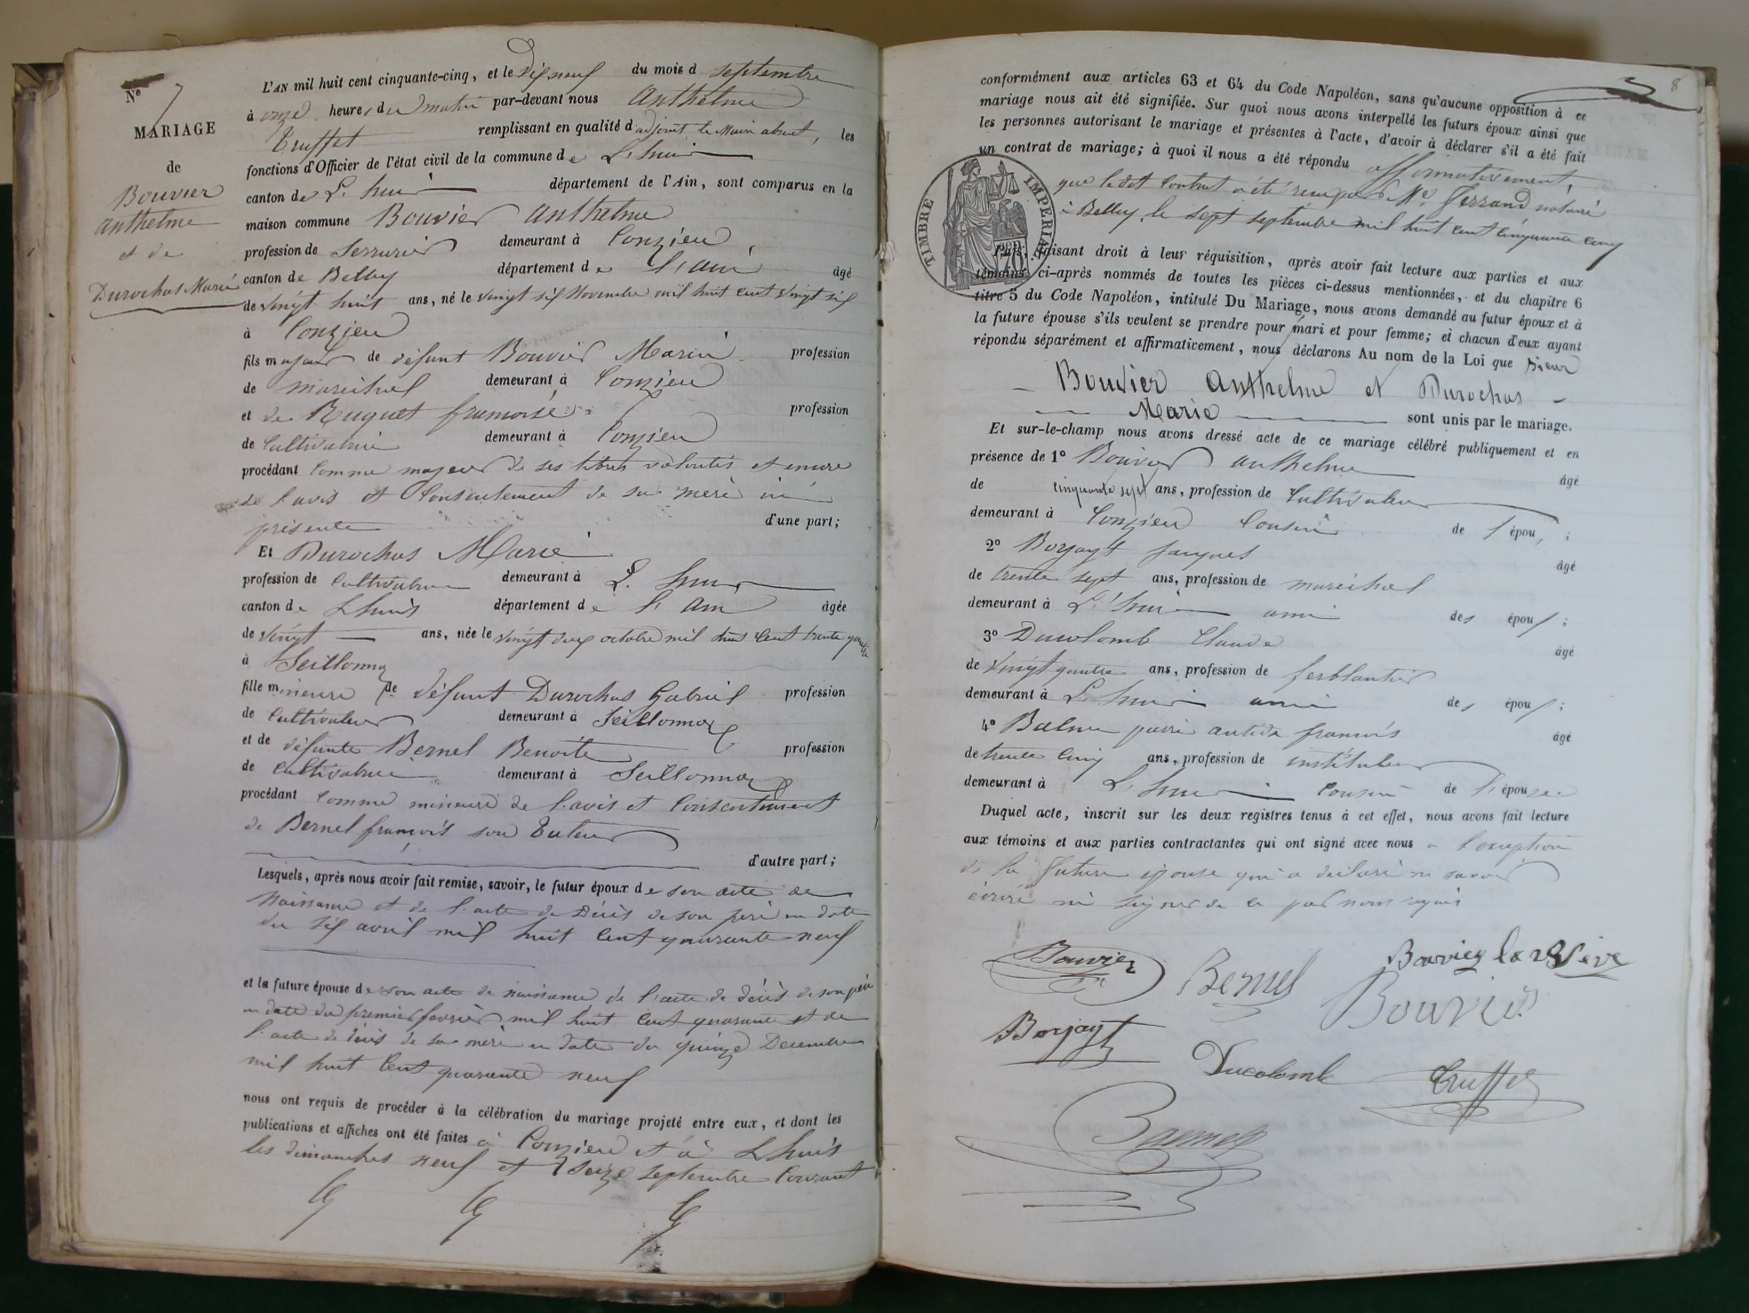 N° 7
MARIAGE
de
Bouvier
anthelme
et de
Durochas Marie
L'AN mil huit cent cinquante-cinq, et le dix neuf du mois d septembre
à onze heures du matin par-devant nous Anthelme
Truffet remplissant en qualité d'adjoint le Maire absent, les
fonctions d'Officier de l'état civil de la commune de L'huis
canton de L'huis département de l'Ain, sont comparus en la
maison commune Bouvier Anthelme
profession de Serrurier demeurant à Conzieu,
canton de Belley département de l'ain âgé
de vingt huit ans, né le vingt six Novembre mil huit cent vingt six
à Conzieu
fils majeur de défunt Bouvier Marin profession
de maréchal demeurant à Conzieu
et de Ruquet françoise profession
de Cultivatrice demeurant à Conzieu
procédant comme majeur de ses libres volontés et encore
de l'avis et Consentement de sa mère ici
présente d'une part;
Et Durochas Marie
profession de Cultivatrice demeurant à L'huis
canton de Lhuis département de l'Ain âgée
de vingt ans, née le vingt six octobre mil huit cent trente quatre
à Seillonnaz
fille mineure de défunt Durochas Gabriel profession
de Cultivateur demeurant à Seillonnaz
et de défunte Bernel Benoite profession
de Cultivatrice demeurant à Seillonnaz
procédant comme mineure de l'avis et Consentement
de Bernel françois son Tuteur
d'autre part;
Lesquels, après nous avoir fait remise, savoir, le futur époux de son acte de
Naissance et de l'acte de Décès de son père en date
du six avril mil huit cent quarante neuf
et la future épouse de son acte de naissance de l'acte de décès de son père
en date du premier fevrier mil huit cent quarante et de
l'acte de décès de sa mère en date du quinze Decembre
mil huit cent quarante neuf
nous ont requis de procéder à la célébration du mariage projeté entre eux, et dont les
publications et affiches ont été faites à Conzieu et à Lhuis
les dimanches neuf et seize septembre Courant
8
conformément aux articles 63 et 64 du Code Napoléon, sans qu'aucune opposition à ce
mariage nous ait été signifiée. Sur quoi nous avons interpellé les futurs époux ainsi que
les personnes autorisant le mariage et présentes à l'acte, d'avoir à déclarer s'il a été fait
un contrat de mariage; à quoi il nous a été répondu affirmativement,
que ledit Contrat a été reçu par Me Ferrand notaire
à Belley, le sept septembre mil huit cent cinquante cinq
TIMBRE IMPERIAL
Puis, faisant droit à leur réquisition, après avoir fait lecture aux parties et aux
témoins ci-après nommés de toutes les pièces ci-dessus mentionnées, et du chapitre 6
titre 5 du Code Napoléon, intitulé Du Mariage, nous avons demandé au futur époux et à
la future épouse s'ils veulent se prendre pour mari et pour femme; et chacun d'eux ayant
répondu séparément et affirmativement, nous déclarons Au nom de la Loi que Sieur
Bouvier Anthelme et Durochas
Marie sont unis par le mariage.
Et sur-le-champ nous avons dressé acte de ce mariage célébré publiquement et en
présence de 1° Bouvier anthelme âgé
de cinquante sept ans, profession de Cultivateur
demeurant à Conzieu Cousin de l'époux;
2° Borjayt Jacques âgé
de trente sept ans, profession de maréchal
demeurant à L'huis ami des époux;
3° Ducolomb Claude âgé
de vingt quatre ans, profession de ferblantier
demeurant à L'huis ami des époux;
4° françois âgé
de trente cinq ans, profession de instituteur
demeurant à L'huis Cousin de l'épouse
Duquel acte, inscrit sur les deux registres tenus à cet effet, nous avons fait lecture
aux témoins et aux parties contractantes qui ont signé avec nous à l'exception
de la future épouse qui a déclaré ne savoir
écrire ni signer de ce par nous requis
Bouvier Bernel Bouvier
Bouvier
Borjayt Ducolomb Truffet